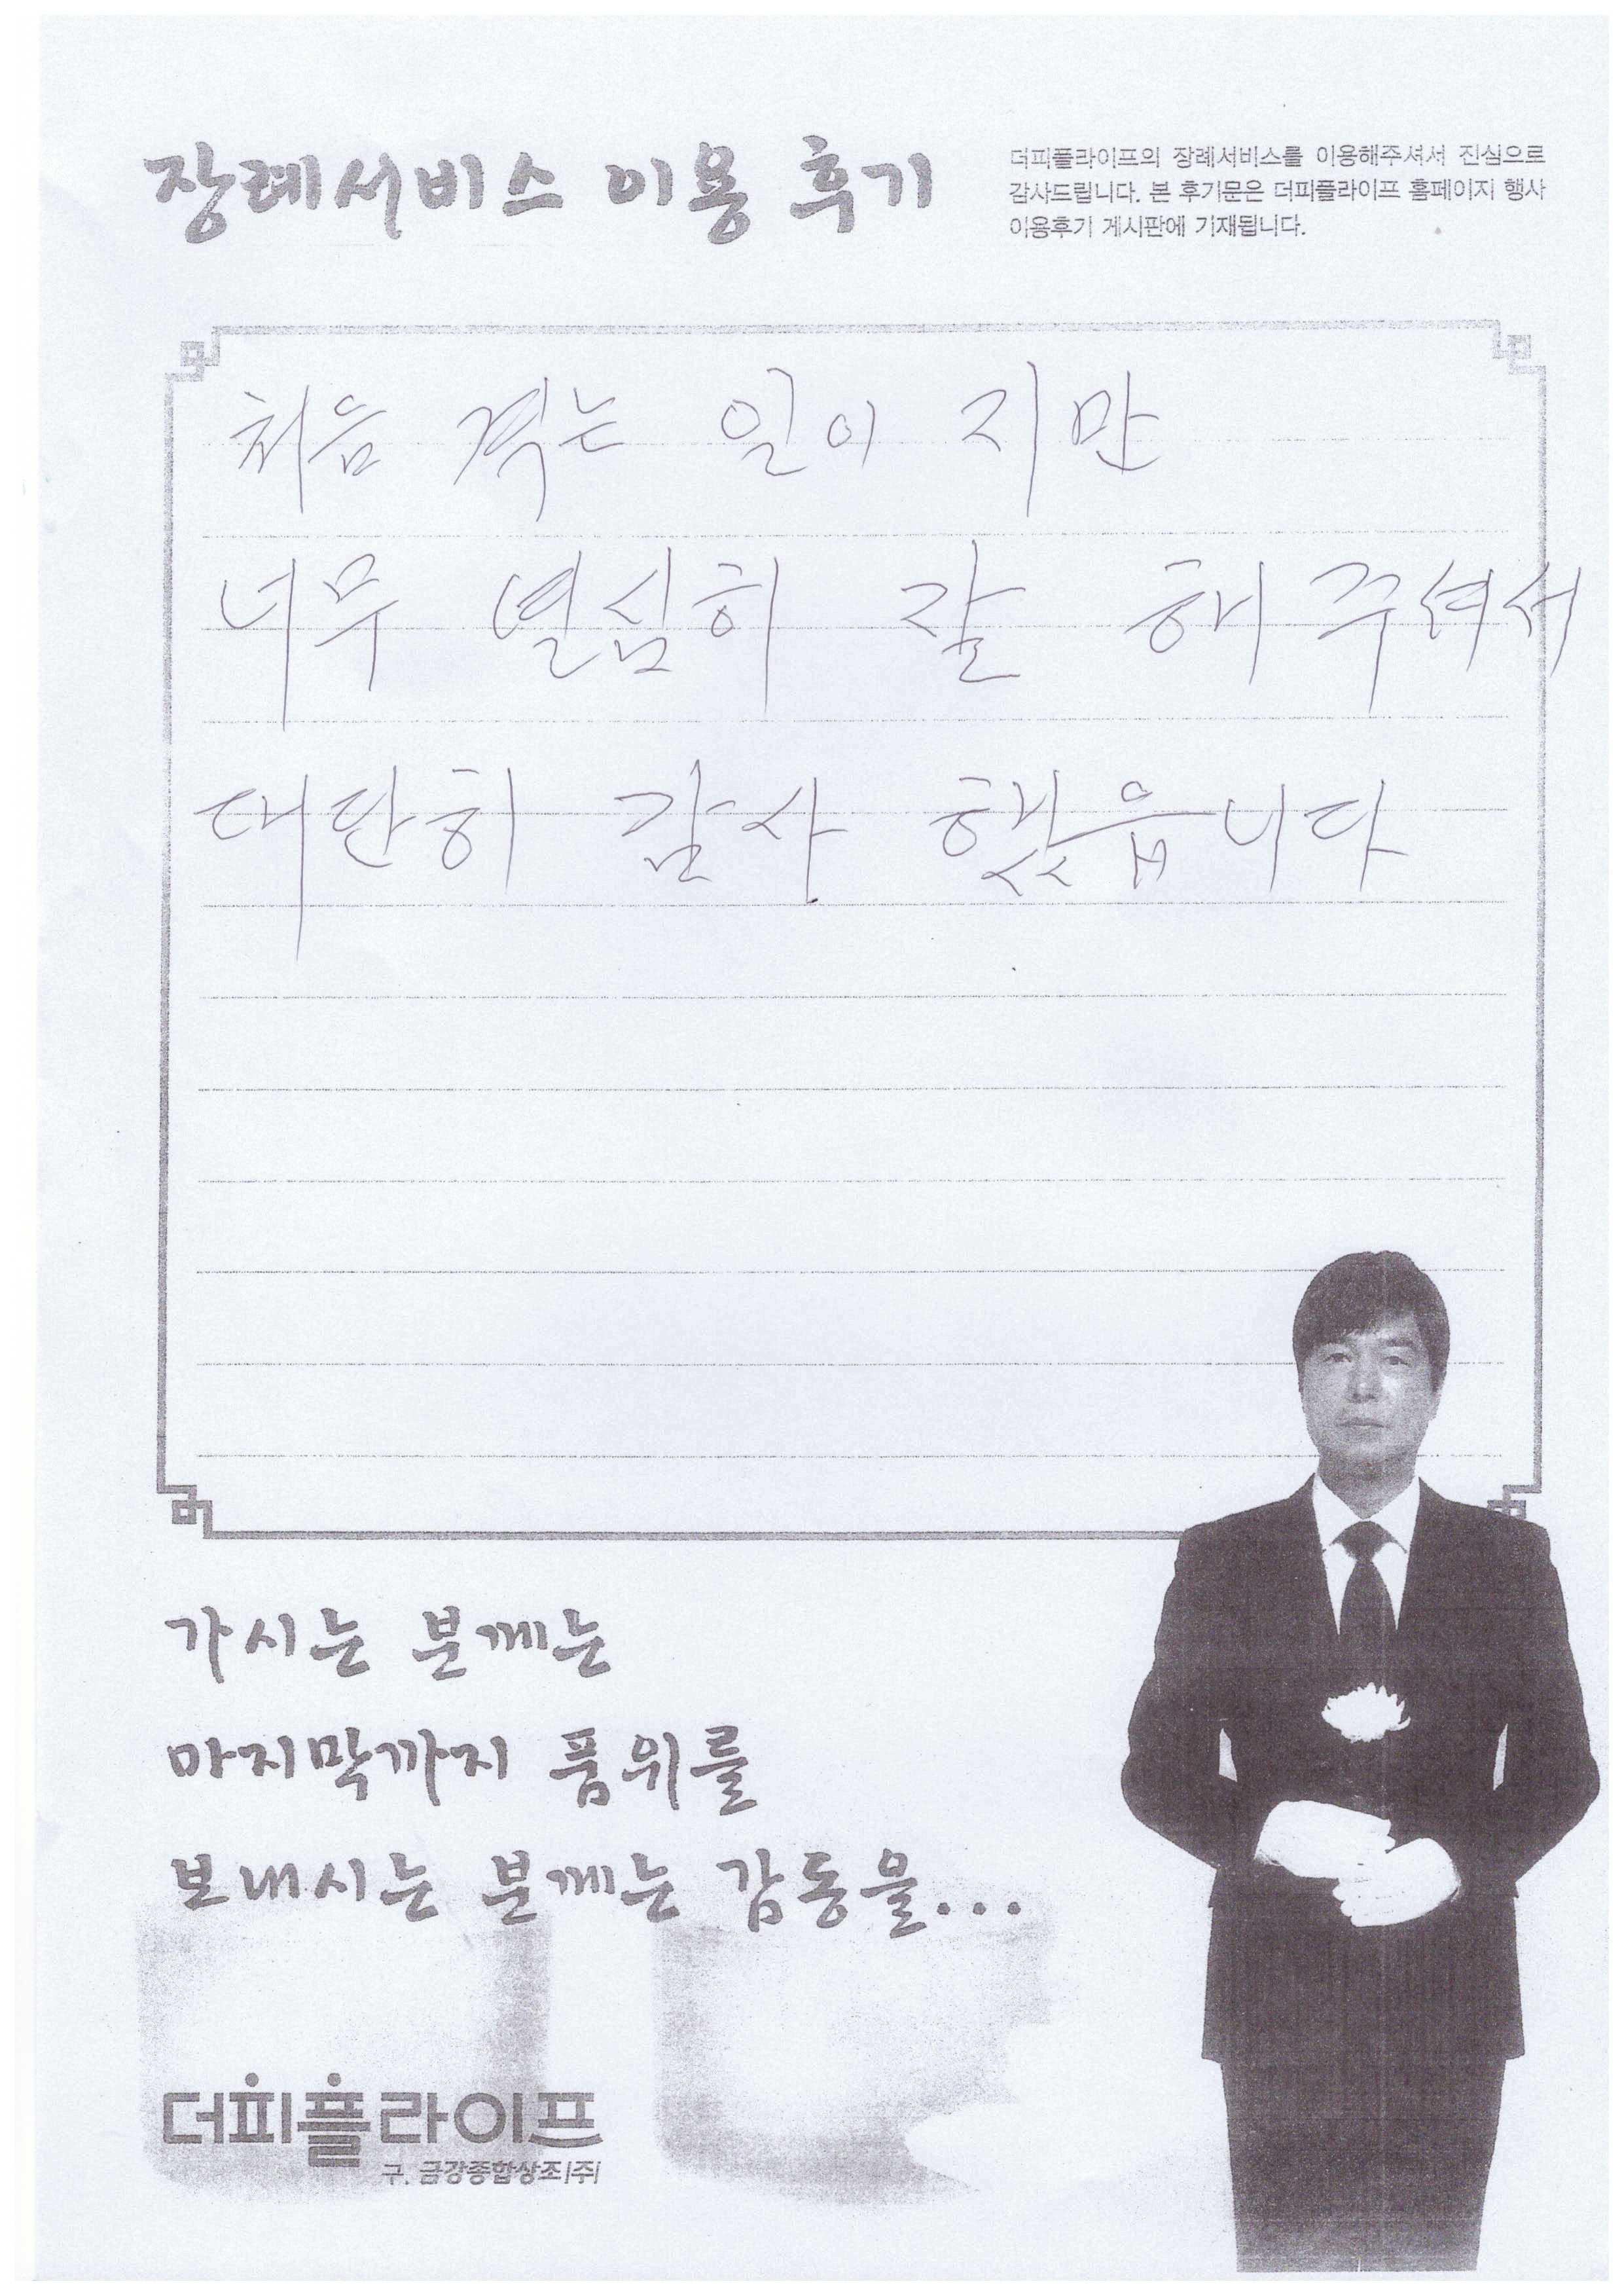 장례서비스 이용 후기
더피플라이프의 장례서비스를 이용해주셔서 진심으로
감사드립니다. 본 후기문은 더피플라이프 홈페이지 행사
이용후기 게시판에 기재됩니다.
처음 겪는 일이 지만
너무 열심히 잘 해 주셔서
대단히 감사 했읍니다
가시는 분께는
마지막까지 품위를
보내시는 분께는 감동을...
더피플라이프
구. 금강종합상조(주)